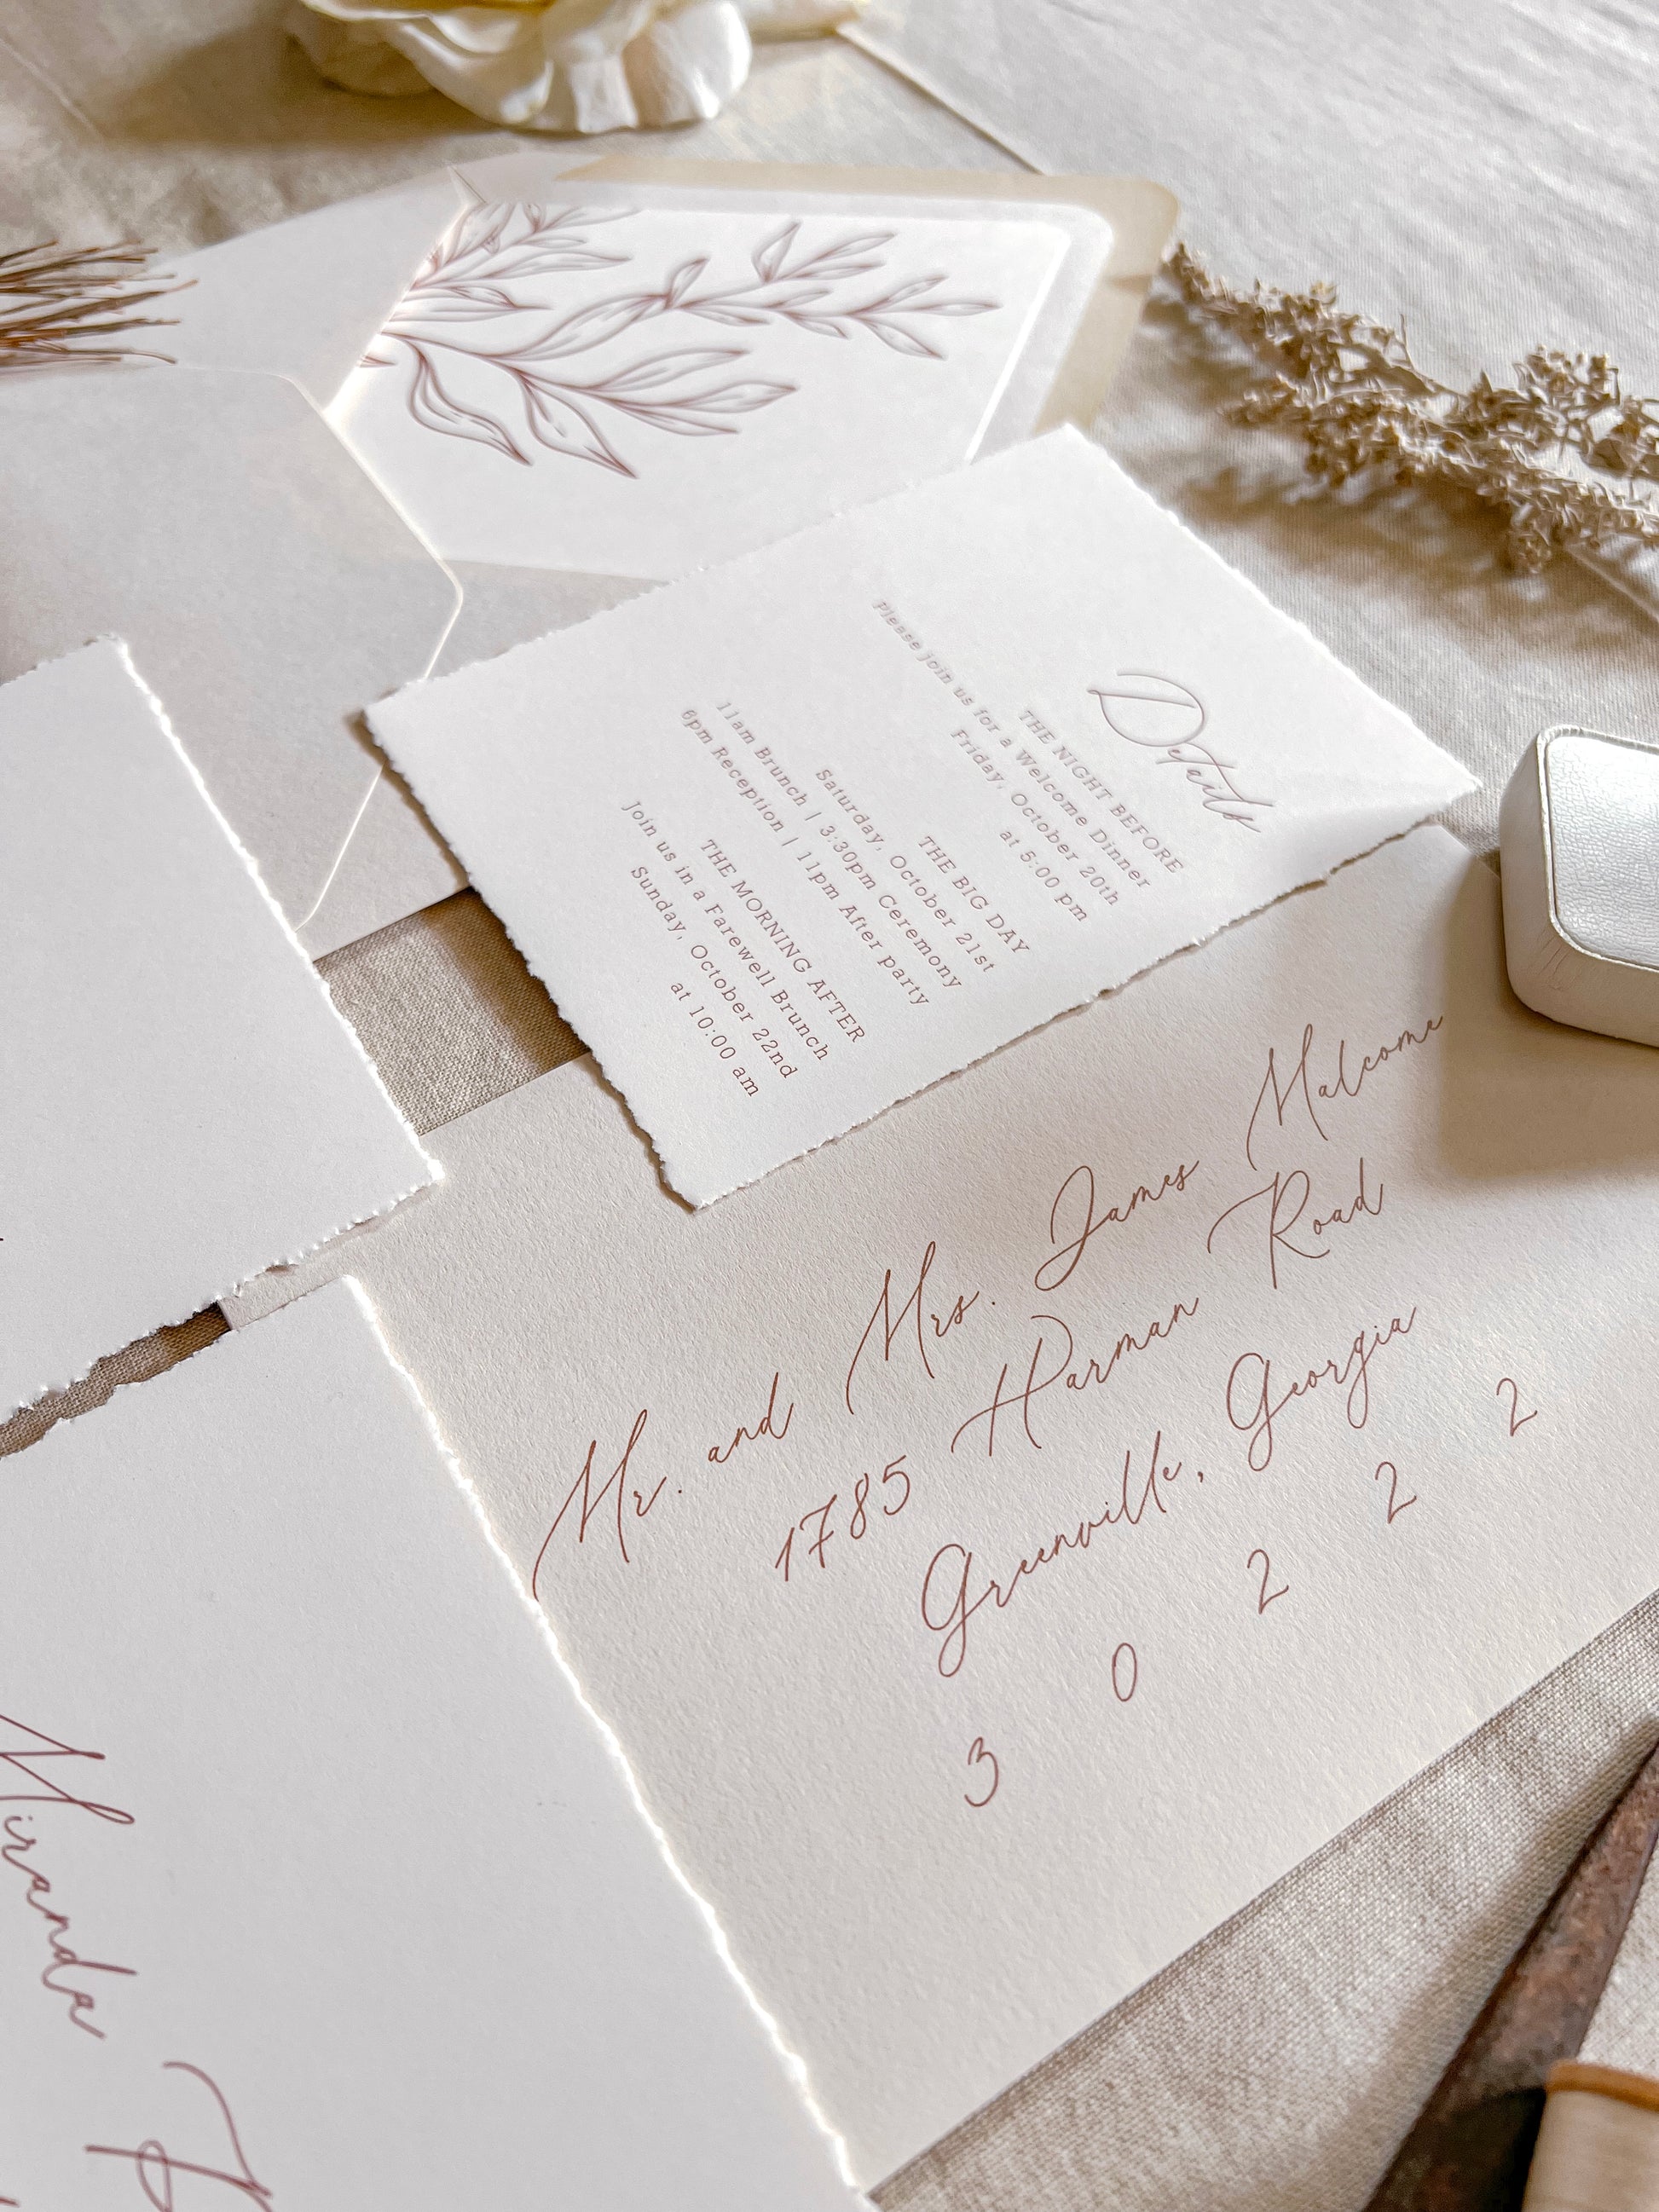 Details
THE NIGHT BEFORE
Please join us for a Welcome Dinner
Friday, October 20th
at 5:00 pm
THE BIG DAY
Saturday, October 21st
11am Brunch | 3:30pm Ceremony
6pm Reception | 11pm After party
THE MORNING AFTER
Join us in a Farewell Brunch
Sunday, October 22nd
at 10:00 am
Mr. and Mrs. James Malcome
1785 Harman Road
Greenville, Georgia
3 0 2 2 2
Miranda